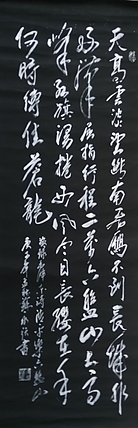 天高雲淡望斷南飛雁不到長城非
好漢屈指行程二萬六盤山上高
峰紅旗漫捲西風今日長纓在手
何時縛住蒼龍